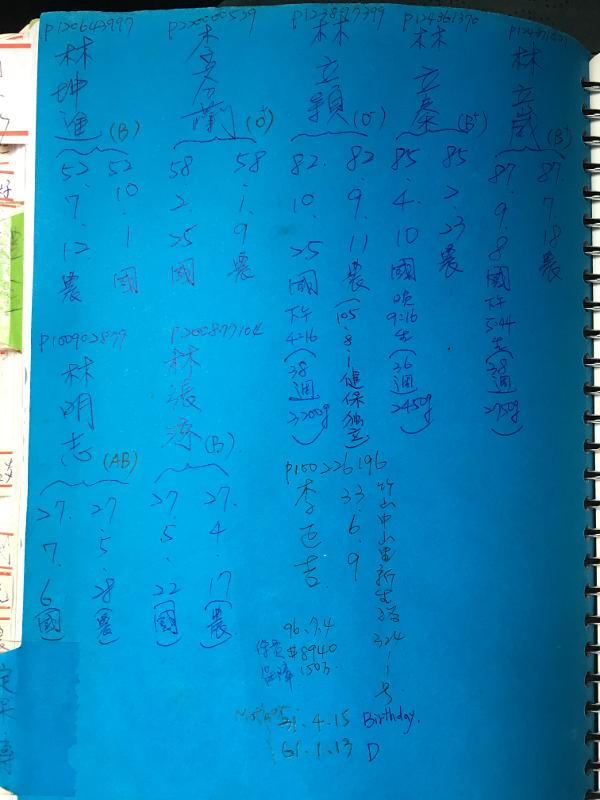 P120643997
林坤進
(B)
52.7.12 農
52.10.1 國
P220000529
(O+)
58.2.25 國
58.1.9 農
P123897399
林立穎
(O-)
82.10.25 國 下午4:16 (38週 3200g)
82.9.11 農 (105.8.1 健保独立)
P124361370
林立秦
(B+)
85.4.10 國 9:16生 (36週 2450g)
85.2.23 農
林立崴
(B+)
87.9.8 國 下午5:44生 (38週 2750g)
87.7.18 農
P100902879
林明志
(AB)
27.7.6 (國)
27.5.28 (農)
P200877104
林張
(B)
27.5.22 (國)
27.4.17 (農)
P100226196
李
33.6.9
竹山中山里新生路324-1号
96.7.4
保費 $8940
保障 150万
31.4.15 Birthday.
61.1.13 D